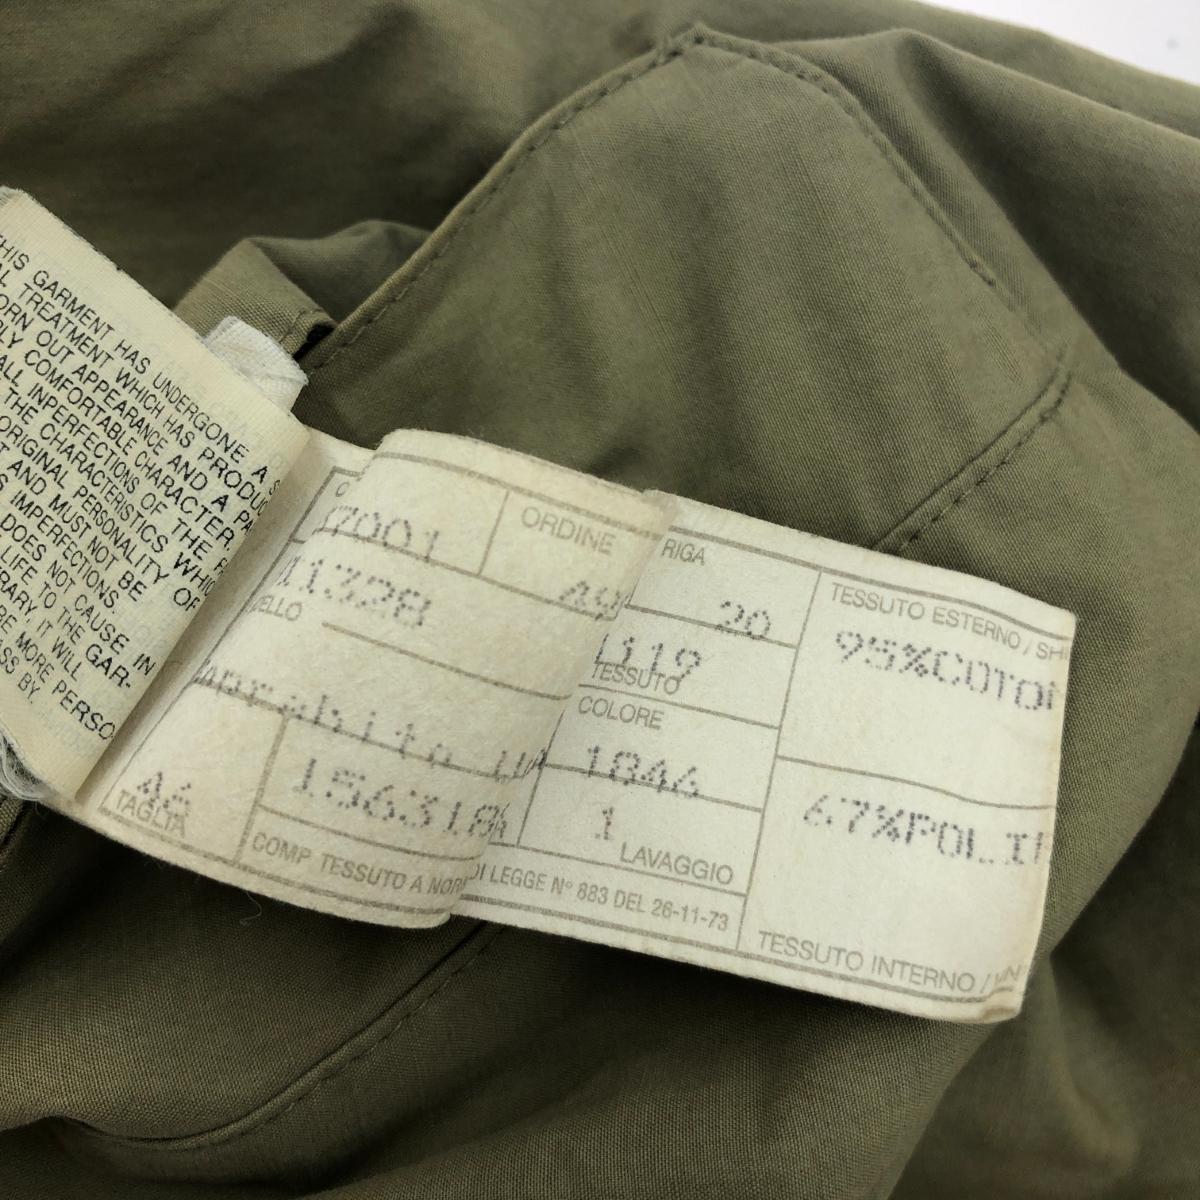 THIS GARMENT HAS UNDERGONE A
TREATMENT WHICH HAS
OUT APPEARANCE AND A
COMFORTABLE CHARACTER.
ALL INPERFECTIONS OF THE
THE CHARACTERISTICS WHIC
ORIGINAL PERSONALITY OF
AND MUST NOT BE
IMPERFECTIONS.
DOES NOT CAUSE IN
LIFE TO THE GAR-
IT WILL
MORE PERSO
BY.
ORDINE
RIGA
20
11328
1119
TESSUTO
COLORE
1846
46
TAGLIA
1563186
1
LAVAGGIO
COMP TESSUTO A NOR DI LEGGE N° 883 DEL 26-11-73
TESSUTO ESTERNO / SH
95%COTO
67%POLI
TESSUTO INTERNO /